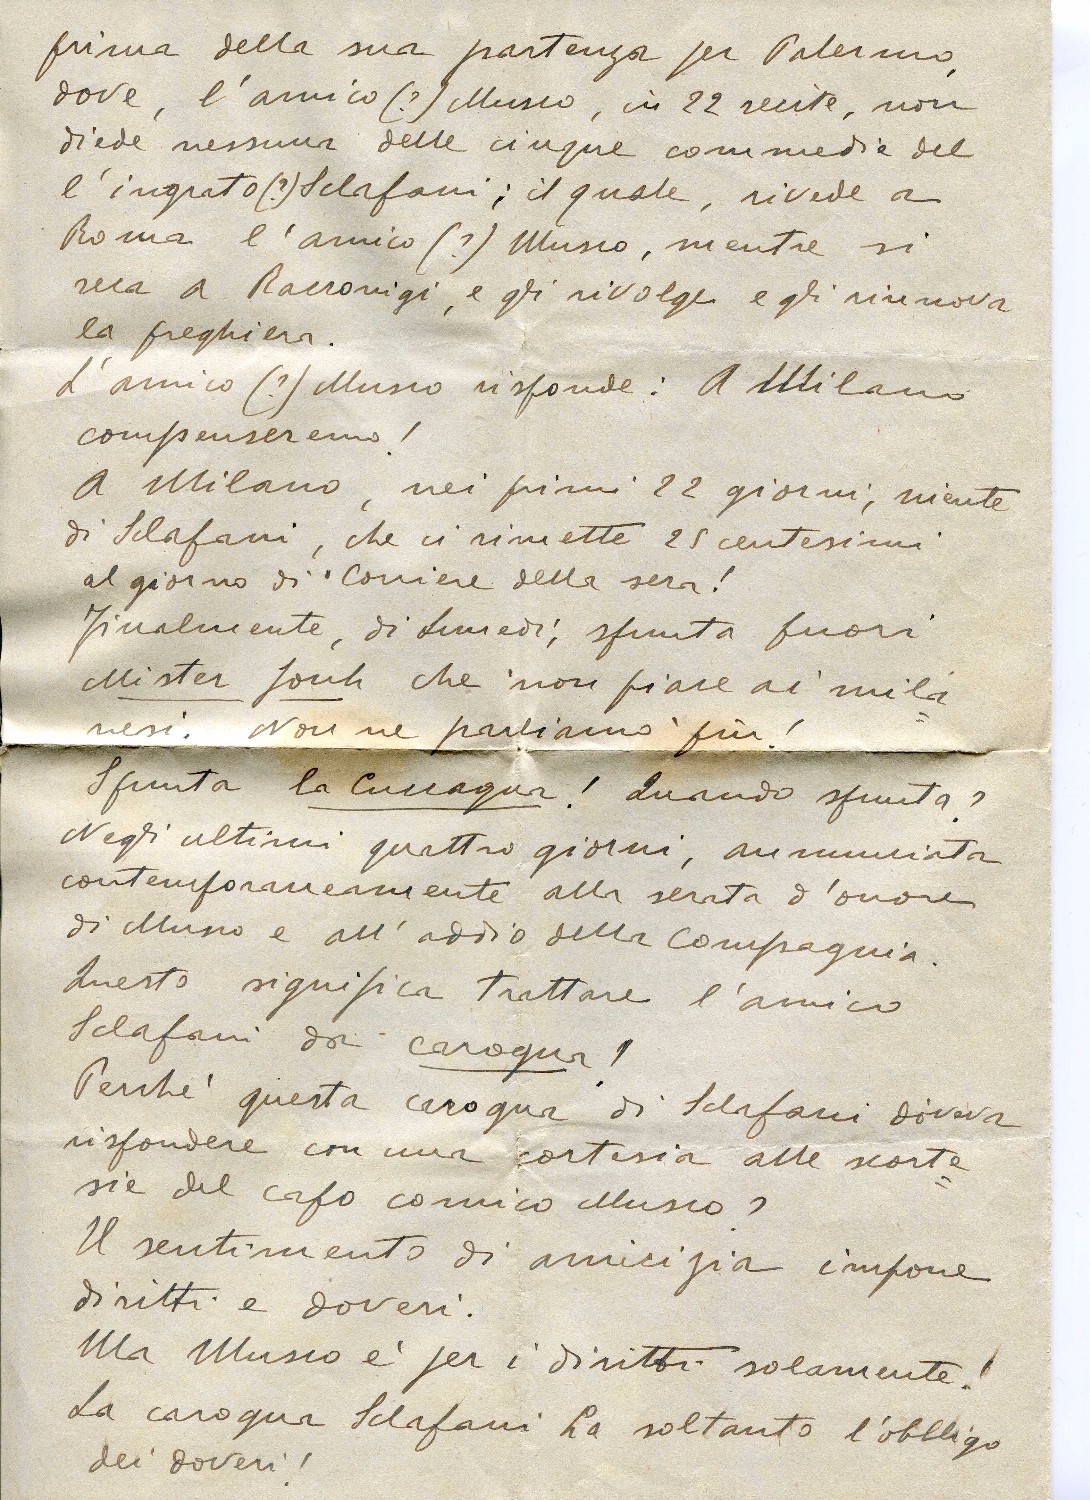 prima della sua partenza per Palermo,
dove, l'amico (?) Musco, in 22 recite, non
diede nessuna delle cinque commedie del
l'ingrato (?) Sclafani; il quale, rivede a
Roma l'amico (?) Musco, mentre si
reca a Racconigi, e gli rivolge e gli rinnova
la preghiera.
L'amico (?) Musco risponde: A Milano
compenseremo!
A Milano, nei primi 22 giorni, niente
di Sclafani, che ci rimette 25 centesimi
al giorno di Corriere della sera!
Finalmente, di Lunedì, spunta fuori
Mister Jonh che non piace ai mila=
nesi. Non ne parliamo più!
Spunta la Cuccagna! Quando spunta?
Negli ultimi quattro giorni, annunciata
contemporaneamente alla serata d'onore
di Musco e all'addio della Compagnia.
Questo significa trattare l'amico
Sclafani da carogna!
Perché questa carogna di Sclafani doveva
rispondere con una cortesia alle scorte=
sie del capo comico Musco?
Il sentimento di amicizia impone
diritti e doveri.
Ma Musco è per i diritti solamente!
La carogna Sclafani ha soltanto l'obbligo
dei doveri!